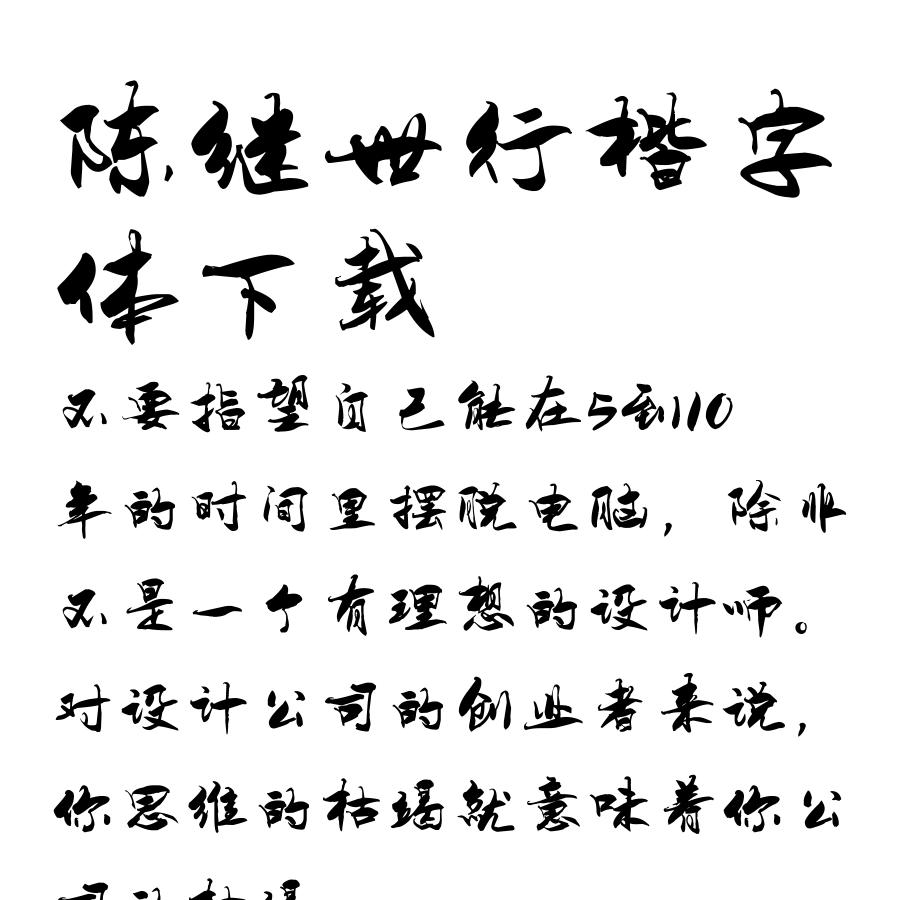 陈继世行楷字
体下载
不要指望自己能在5到10
年的时间里摆脱电脑，除非
不是一个有理想的设计师。
对设计公司的创业者来说，
你思维的枯竭就意味着你公
司的枯竭